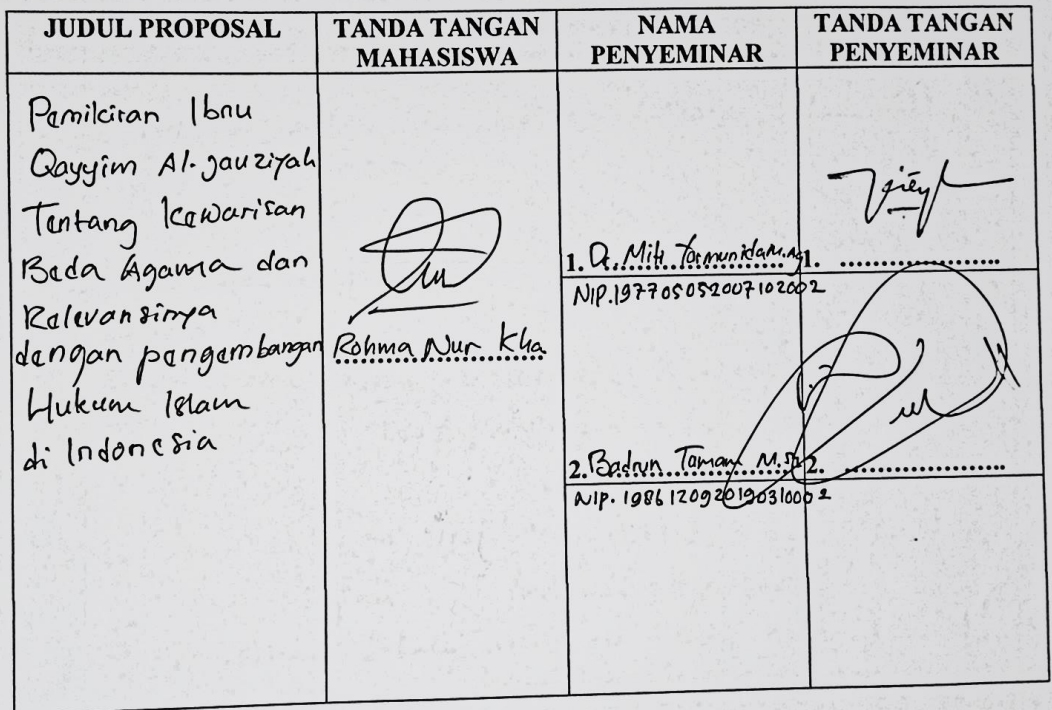 JUDUL PROPOSAL
TANDA TANGAN
MAHASISWA
NAMA
PENYEMINAR
TANDA TANGAN
PENYEMINAR
Pemikiran Ibnu
Qayyim Al-Jauziyah
Tentang Kewarisan
Beda Agama dan
Relevansinya
dengan pengembangan
Hukum Islam
di Indonesia
Rohma Nur Kha
1. Dr. Miti Yarmunida M.Ag
1. ....................
NIP.197705052007102002
2. Badrun Taman M.
2. ....................
NIP. 198612092019031002